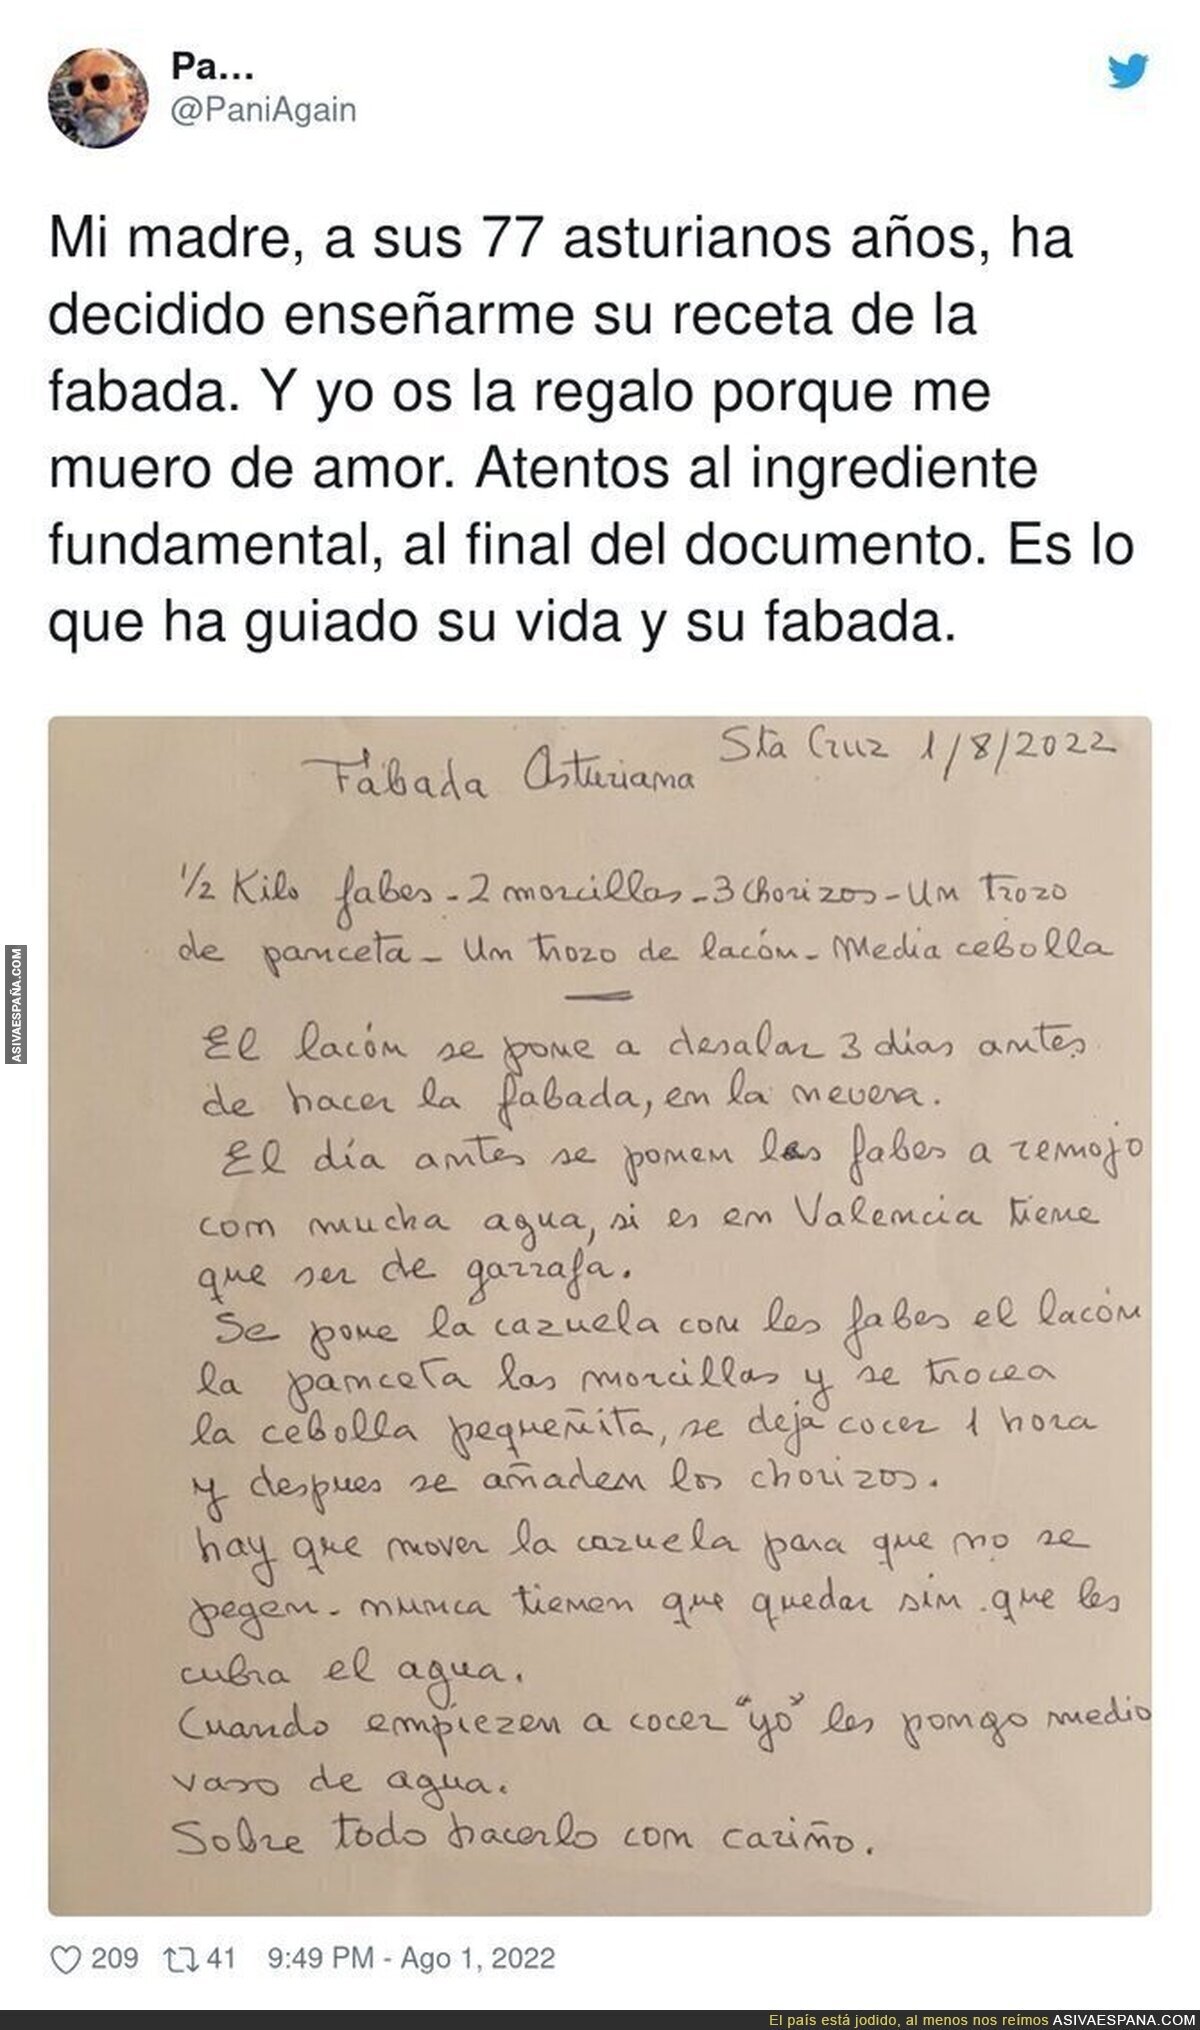 Pa...
@PaniAgain
Mi madre, a sus 77 asturianos años, ha
decidido enseñarme su receta de la
fabada. Y yo os la regalo porque me
muero de amor. Atentos al ingrediente
fundamental, al final del documento. Es lo
que ha guiado su vida y su fabada.
Sta Cruz 1/8/2022
Fabada Asturiana
1/2 Kilo fabes - 2 morcillas - 3 Chorizos - Un trozo
de panceta - Un trozo de lacón - Media cebolla
El lacón se pone a desalar 3 días antes
de hacer la fabada, en la nevera.
El día antes se ponen les fabes a remojo
con mucha agua, si es en Valencia tiene
que ser de garrafa.
Se pone la cazuela con les fabes el lacón
la panceta las morcillas y se trocea
la cebolla pequeñita, se deja cocer 1 hora
y despues se añaden los chorizos.
hay que mover la cazuela para que no se
pegen - nunca tienen que quedar sin que les
cubra el agua.
Cuando empiezen a cocer "yo" les pongo medio
vaso de agua.
Sobre todo hacerlo con cariño.
209 41 9:49 PM - Ago 1, 2022
ASIVAESPAÑA.COM
El país está jodido, al menos nos reímos ASIVAESPANA.COM